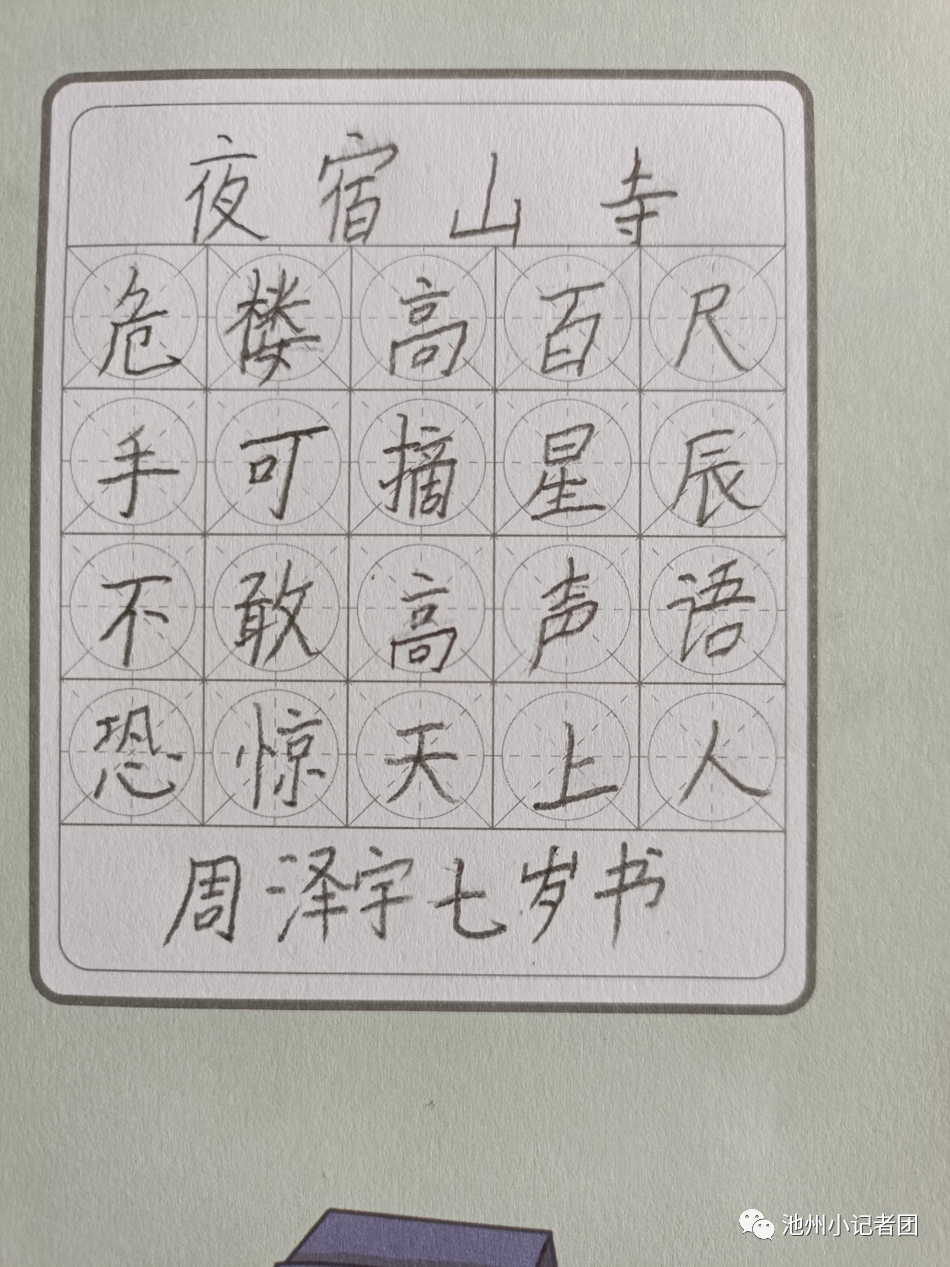 夜宿山寺
危楼高百尺
手可摘星辰
不敢高声语
恐惊天上人
周泽宇七岁书
池州小记者团